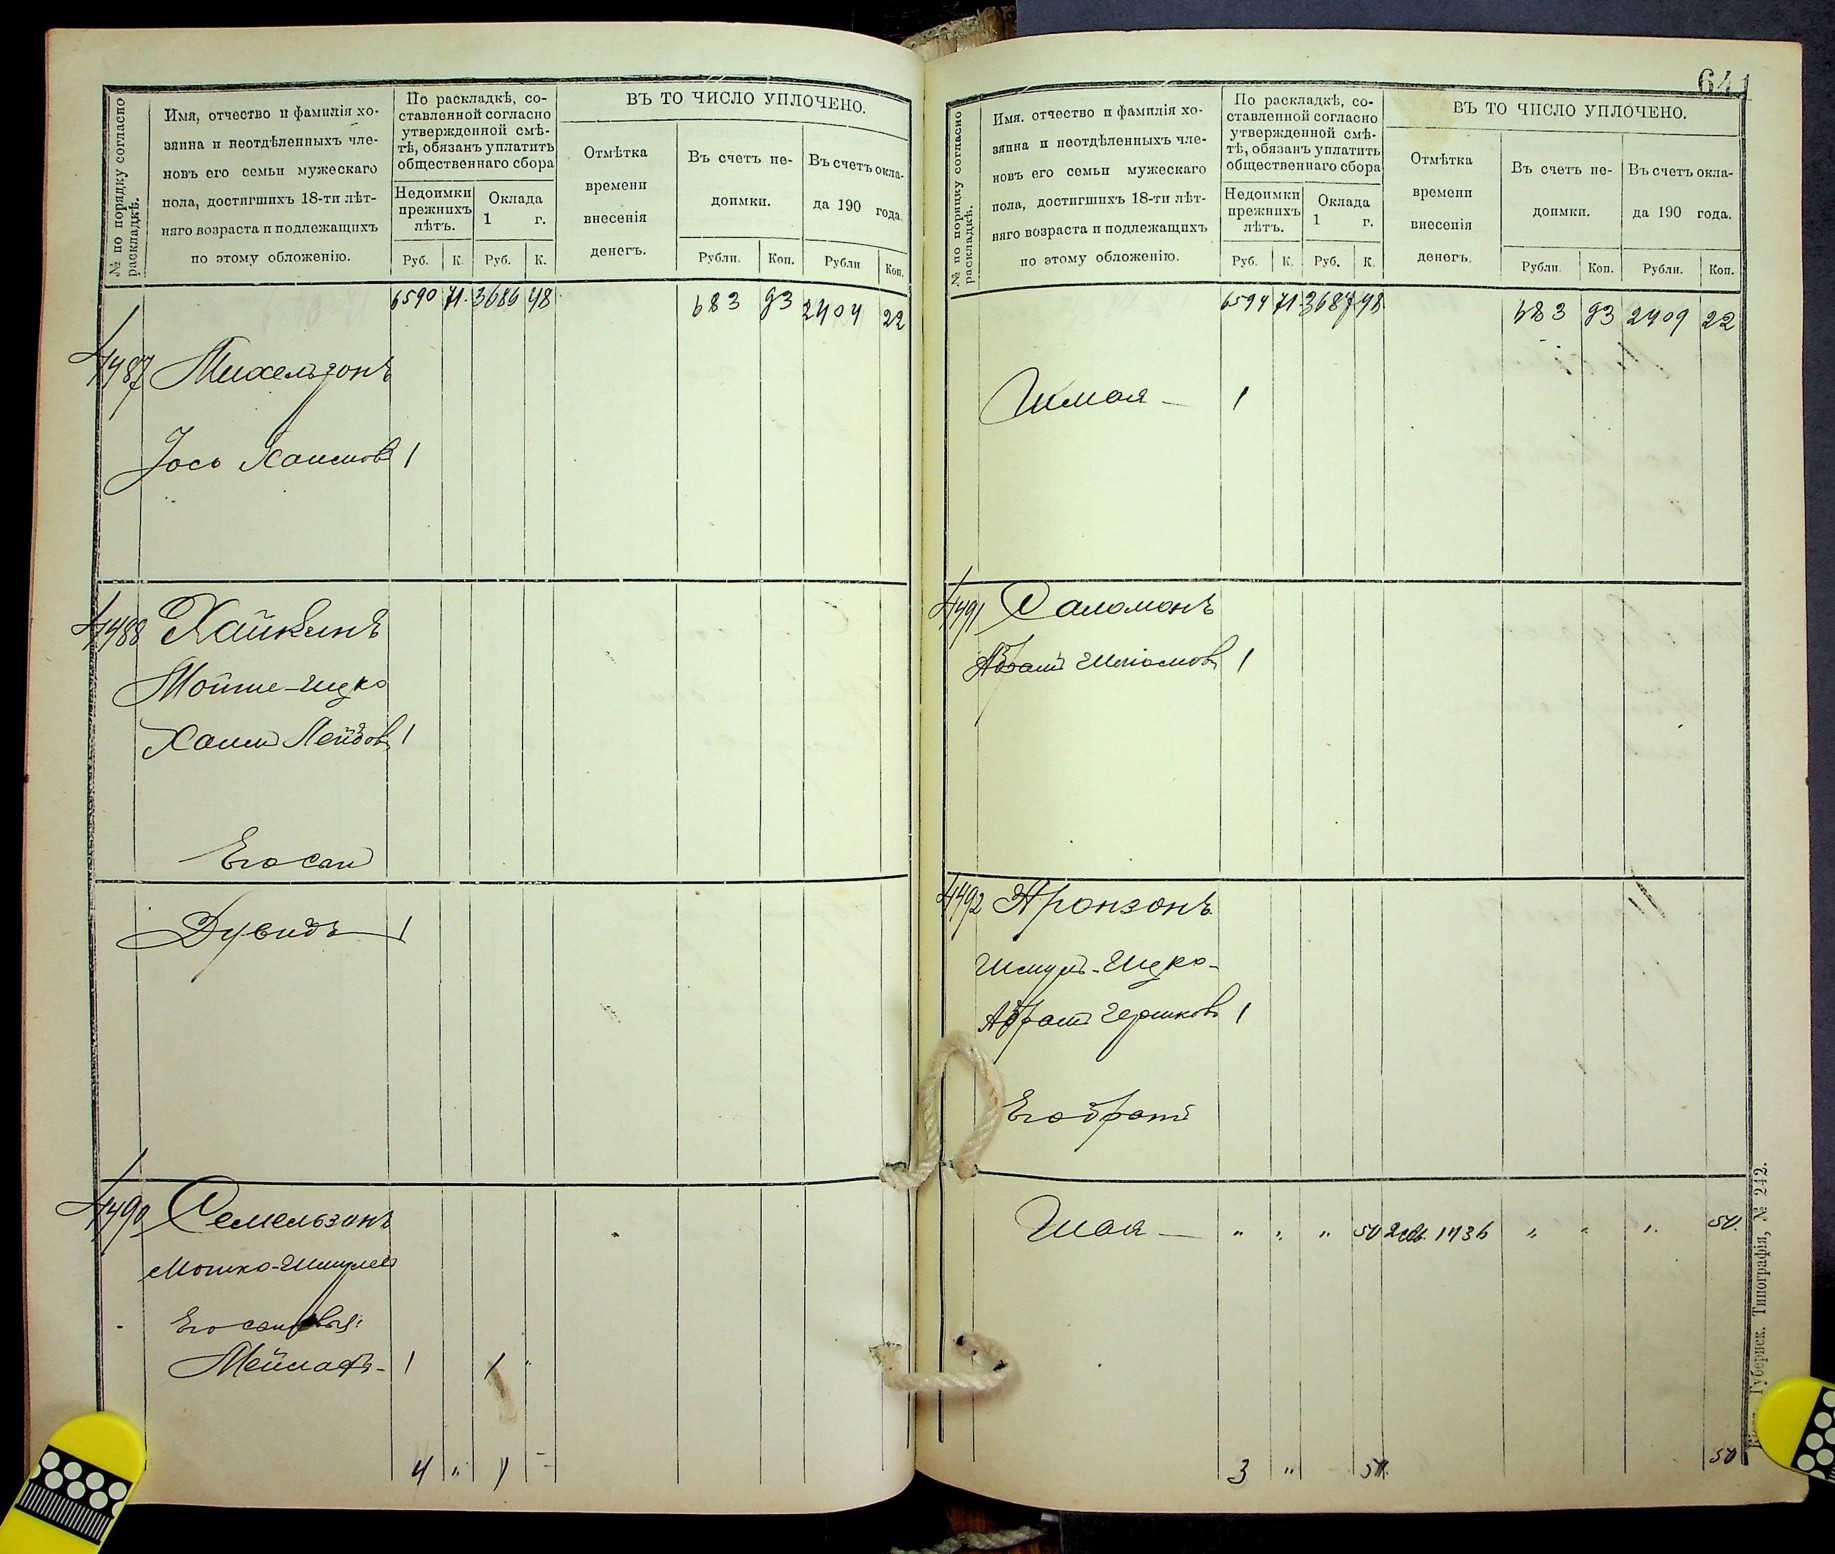 № по порядку согласно раскладкѣ.
Имя, отчество и фамилія хо-
зяина и неотдѣленныхъ чле-
новъ его семьи мужескаго
пола, достигшихъ 18-ти лѣт-
няго возраста и подлежащихъ
по этому обложенію.
По раскладкѣ, со-
ставленной согласно
утвержденной смѣ-
тѣ, обязанъ уплатить
общественнаго сбора
Недоимки
прежнихъ
лѣтъ.
Оклада
1 г.
Руб. К. Руб. К.
ВЪ ТО ЧИСЛО УПЛОЧЕНО.
Отмѣтка
времени
внесенія
денегъ.
Въ счетъ не-
доимки.
Въ счетъ окла-
да 190 года.
Рубли. Коп. Рубли Коп.
6590 71 3686 48 683 93 2404 22
4487 Михельзонъ
Іось Хаимовъ 1
4488 Хайкинъ
Мойше-Ицко
Хаимъ Лейбовъ 1
Его сынъ
Дувидъ 1
4490 Семельзонъ
Мошко-Шмулевъ
Его сыновья:
Меймахъ - 1 1 "
4 " 1 -
641
№ по порядку согласно раскладкѣ.
Имя, отчество и фамилія хо-
зяина и неотдѣленныхъ чле-
новъ его семьи мужескаго
пола, достигшихъ 18-ти лѣт-
няго возраста и подлежащихъ
по этому обложенію.
По раскладкѣ, со-
ставленной согласно
утвержденной смѣ-
тѣ, обязанъ уплатить
общественнаго сбора
Недоимки
прежнихъ
лѣтъ.
Оклада
1 г.
Руб. К. Руб. К.
ВЪ ТО ЧИСЛО УПЛОЧЕНО.
Отмѣтка
времени
внесенія
денегъ.
Въ счетъ не-
доимки.
Въ счетъ окла-
да 190 года.
Рубли. Коп. Рубли. Коп.
6594 71 3687 48 683 93 2404 22
1
4491 Саломонъ
Абрамъ 1
4492 Аронзонъ
Шмуль-Ицко-
Абрамъ Гершковъ 1
Его братъ
Шая - " " " 50 1736 " " " 50
3 " 50 50
Губернск. Типографія, № 242.